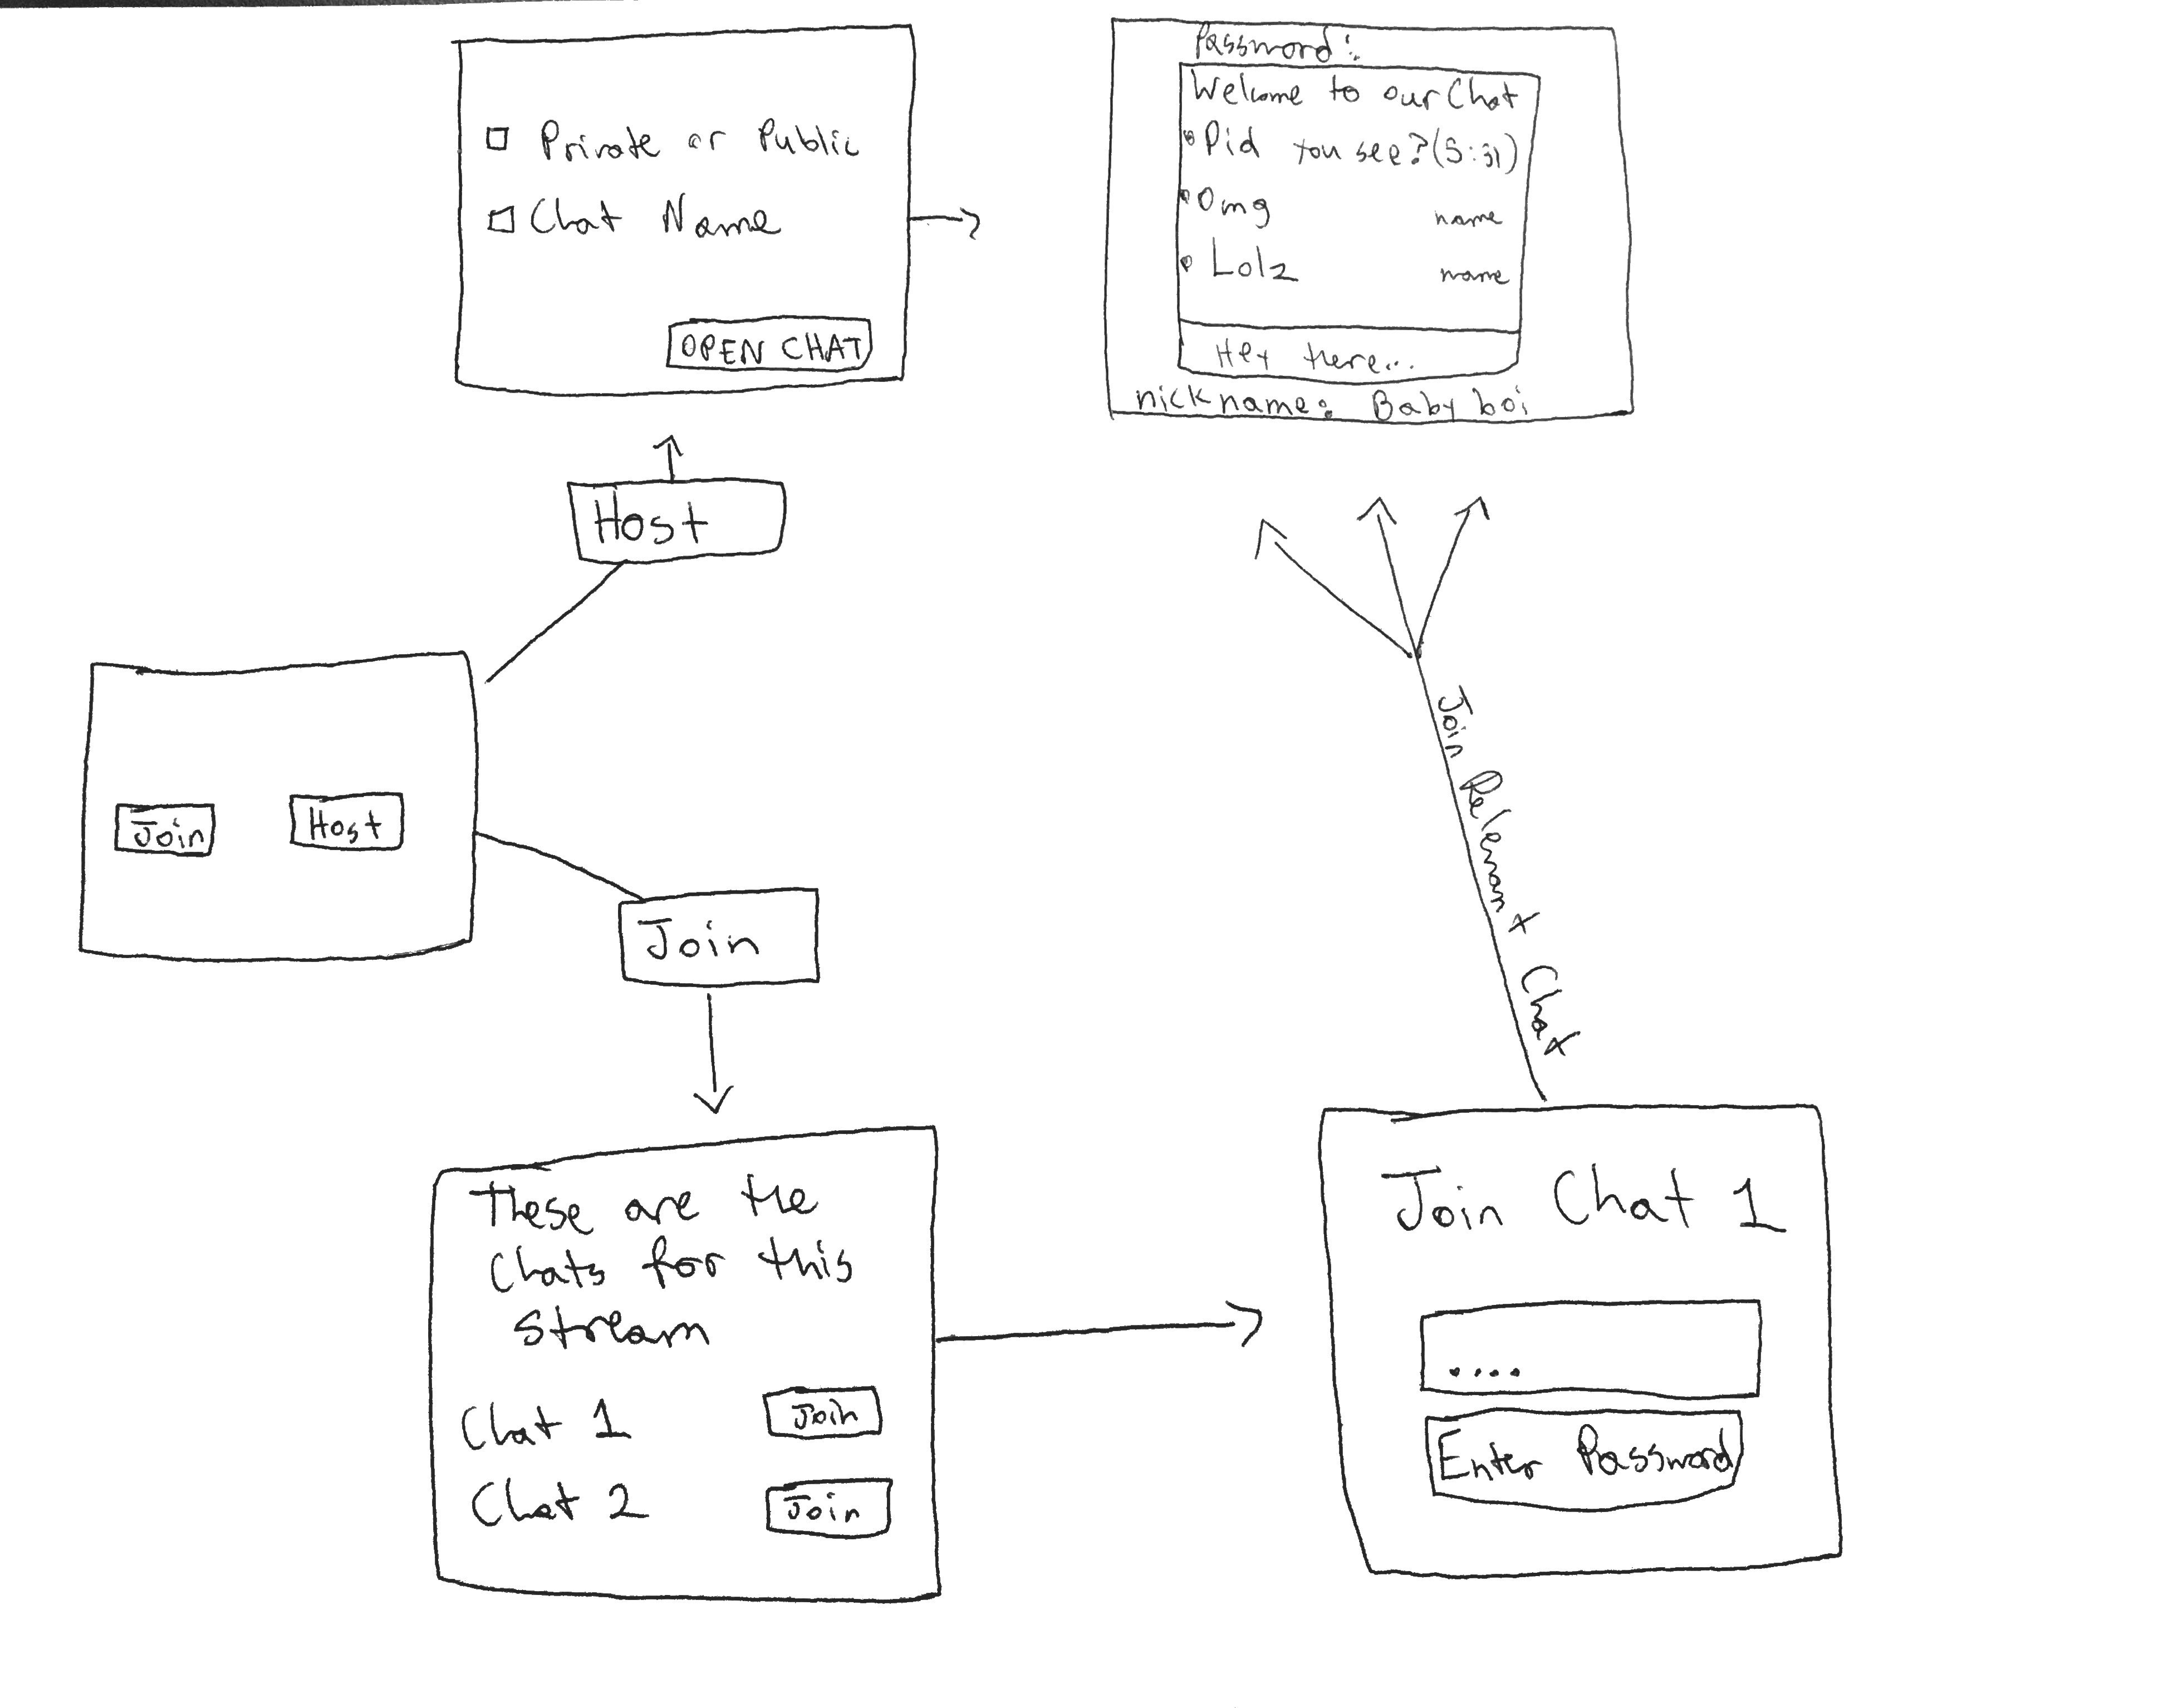 Private or Public
Chat Name
OPEN CHAT
Password:
Welcome to our Chat
Did you see? (5:31)
Omg name
Lolz name
Hey there...
nickname: Baby boi
Host
Join Host
Join
Join Relevant Chat
These are the
Chats for this
Stream
Chat 1 Join
Chat 2 Join
Join Chat 1
....
Enter Password